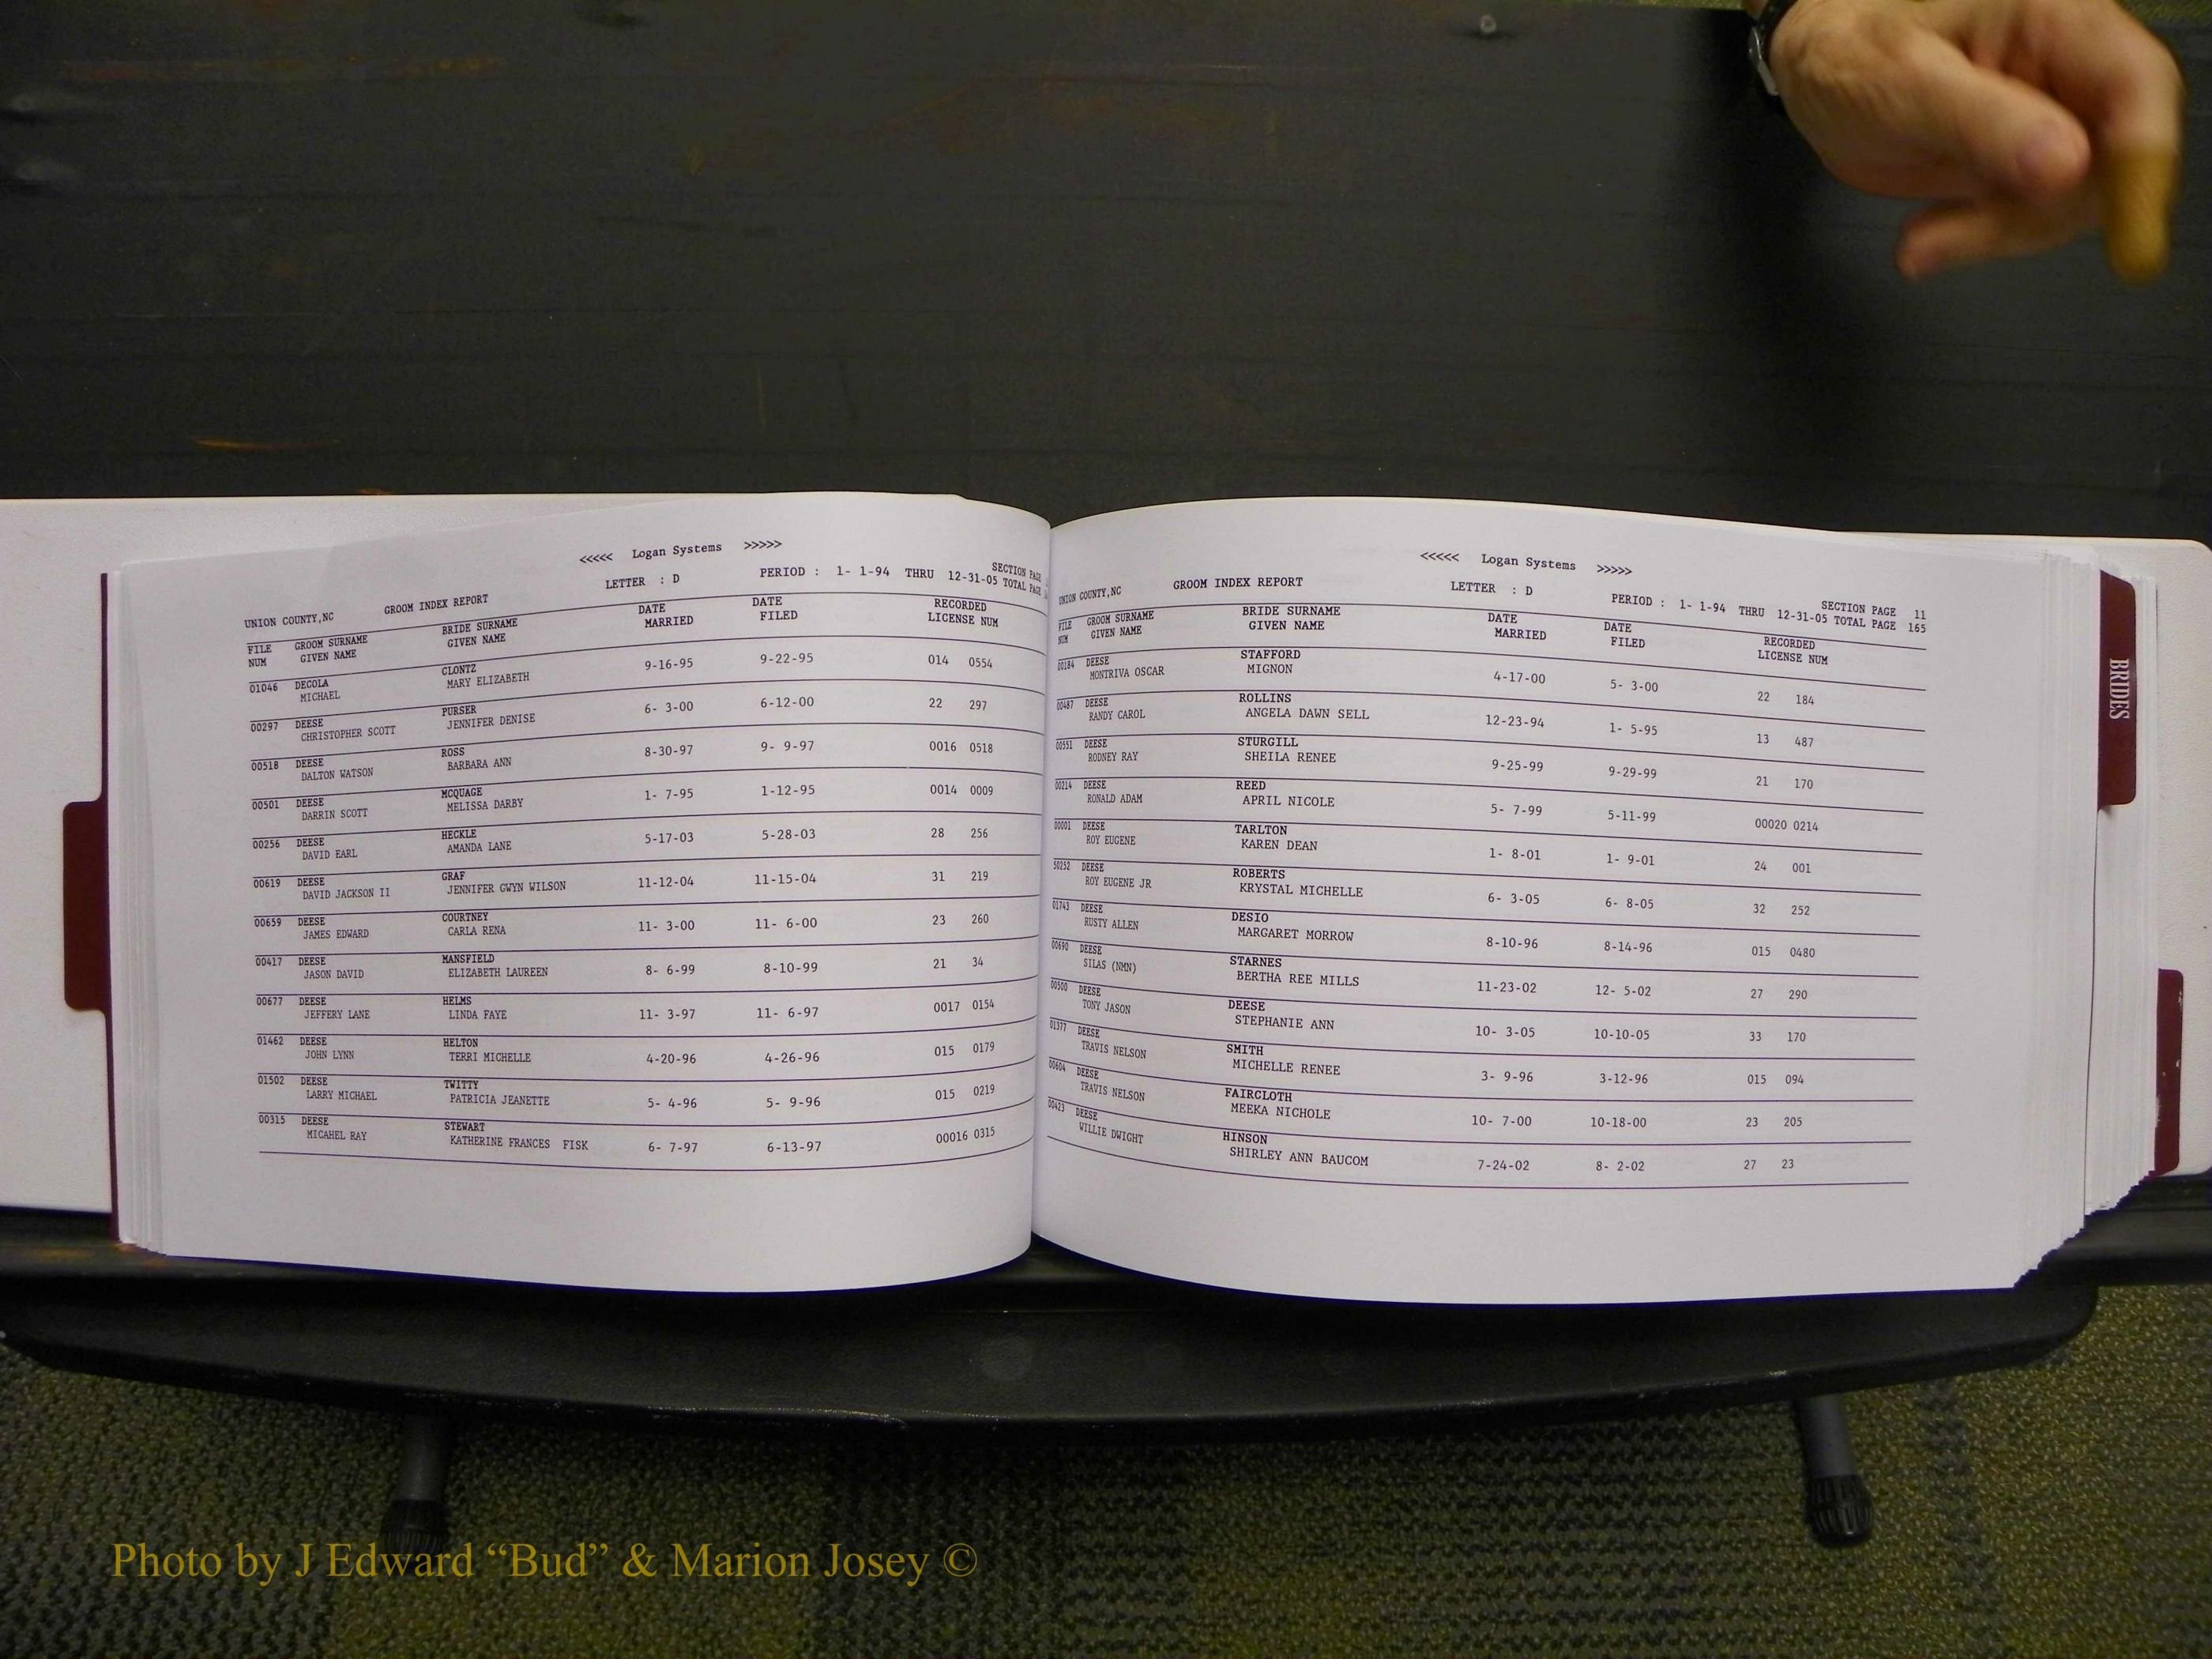 <<<<< Logan Systems >>>>>
UNION COUNTY,NC GROOM INDEX REPORT LETTER : D PERIOD : 1- 1-94 THRU 12-31-05 SECTION PAGE
TOTAL PAGE
FILE GROOM SURNAME BRIDE SURNAME DATE DATE RECORDED
NUM GIVEN NAME GIVEN NAME MARRIED FILED LICENSE NUM
01046 DECOLA CLONTZ 9-16-95 9-22-95 014 0554
MICHAEL MARY ELIZABETH
00297 DEESE PURSER 6- 3-00 6-12-00 22 297
CHRISTOPHER SCOTT JENNIFER DENISE
00518 DEESE ROSS 8-30-97 9- 9-97 0016 0518
DALTON WATSON BARBARA ANN
00501 DEESE MCQUAGE 1- 7-95 1-12-95 0014 0009
DARRIN SCOTT MELISSA DARBY
00256 DEESE HECKLE 5-17-03 5-28-03 28 256
DAVID EARL AMANDA LANE
00619 DEESE GRAF 11-12-04 11-15-04 31 219
DAVID JACKSON II JENNIFER GWYN WILSON
00659 DEESE COURTNEY 11- 3-00 11- 6-00 23 260
JAMES EDWARD CARLA RENA
00417 DEESE MANSFIELD 8- 6-99 8-10-99 21 34
JASON DAVID ELIZABETH LAUREEN
00677 DEESE HELMS 11- 3-97 11- 6-97 0017 0154
JEFFERY LANE LINDA FAYE
01462 DEESE HELTON 4-20-96 4-26-96 015 0179
JOHN LYNN TERRI MICHELLE
01502 DEESE TWITTY 5- 4-96 5- 9-96 015 0219
LARRY MICHAEL PATRICIA JEANETTE
00315 DEESE STEWART 6- 7-97 6-13-97 00016 0315
MICAHEL RAY KATHERINE FRANCES FISK
<<<<< Logan Systems >>>>>
UNION COUNTY,NC GROOM INDEX REPORT LETTER : D PERIOD : 1- 1-94 THRU 12-31-05 SECTION PAGE 11
TOTAL PAGE 165
FILE GROOM SURNAME BRIDE SURNAME DATE DATE RECORDED
NUM GIVEN NAME GIVEN NAME MARRIED FILED LICENSE NUM
00184 DEESE STAFFORD 4-17-00 5- 3-00 22 184
MONTRIVA OSCAR MIGNON
00487 DEESE ROLLINS 12-23-94 1- 5-95 13 487
RANDY CAROL ANGELA DAWN SELL
00551 DEESE STURGILL 9-25-99 9-29-99 21 170
RODNEY RAY SHEILA RENEE
00214 DEESE REED 5- 7-99 5-11-99 00020 0214
RONALD ADAM APRIL NICOLE
00001 DEESE TARLTON 1- 8-01 1- 9-01 24 001
ROY EUGENE KAREN DEAN
50252 DEESE ROBERTS 6- 3-05 6- 8-05 32 252
ROY EUGENE JR KRYSTAL MICHELLE
01743 DEESE DESIO 8-10-96 8-14-96 015 0480
RUSTY ALLEN MARGARET MORROW
00690 DEESE STARNES 11-23-02 12- 5-02 27 290
SILAS (NMN) BERTHA REE MILLS
00500 DEESE DEESE 10- 3-05 10-10-05 33 170
TONY JASON STEPHANIE ANN
01377 DEESE SMITH 3- 9-96 3-12-96 015 094
TRAVIS NELSON MICHELLE RENEE
00604 DEESE FAIRCLOTH 10- 7-00 10-18-00 23 205
TRAVIS NELSON MEEKA NICHOLE
00423 DEESE HINSON 7-24-02 8- 2-02 27 23
WILLIE DWIGHT SHIRLEY ANN BAUCOM
BRIDES
Photo by J Edward “Bud” & Marion Josey ©